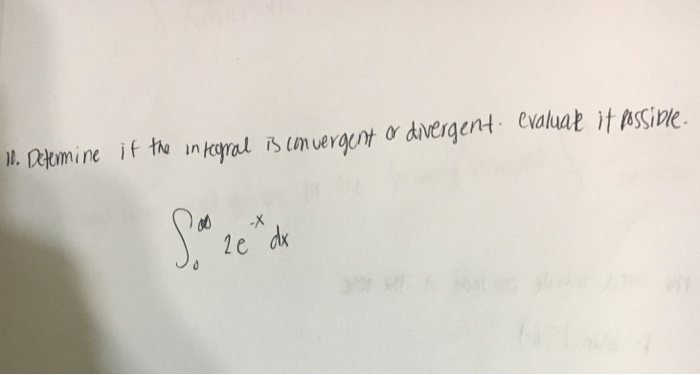 10. Determine if the integral is convergent or divergent. evaluate if possible.
∫₀^∞ 2e^-x dx